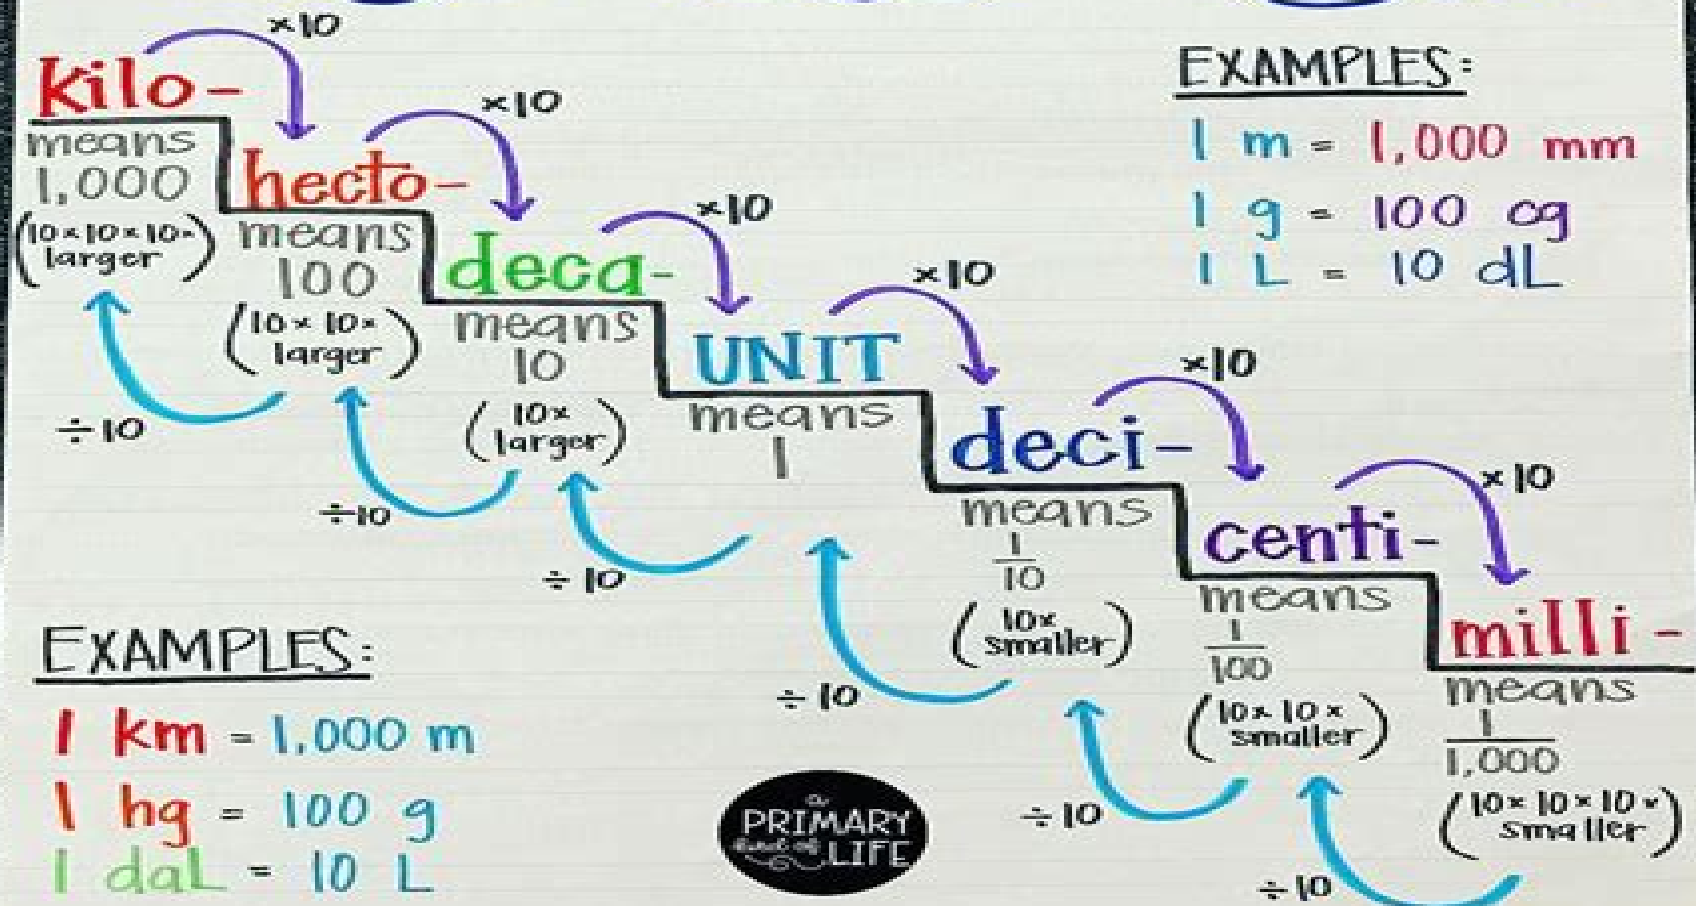 ×10
kilo-
means
1,000
(10×10×10×
larger)
×10
hecto-
means
100
(10×10×
larger)
×10
deca-
means
10
(10×
larger)
×10
UNIT
means
1
×10
deci-
means
1/10
(10×
smaller)
×10
centi-
means
1/100
(10×10×
smaller)
milli-
means
1/1,000
(10×10×10×
smaller)
÷10
÷10
÷10
÷10
÷10
÷10
EXAMPLES:
1 m = 1,000 mm
1 g = 100 cg
1 L = 10 dL
EXAMPLES:
1 km = 1,000 m
1 hg = 100 g
1 daL = 10 L
a
PRIMARY
kind of
LIFE